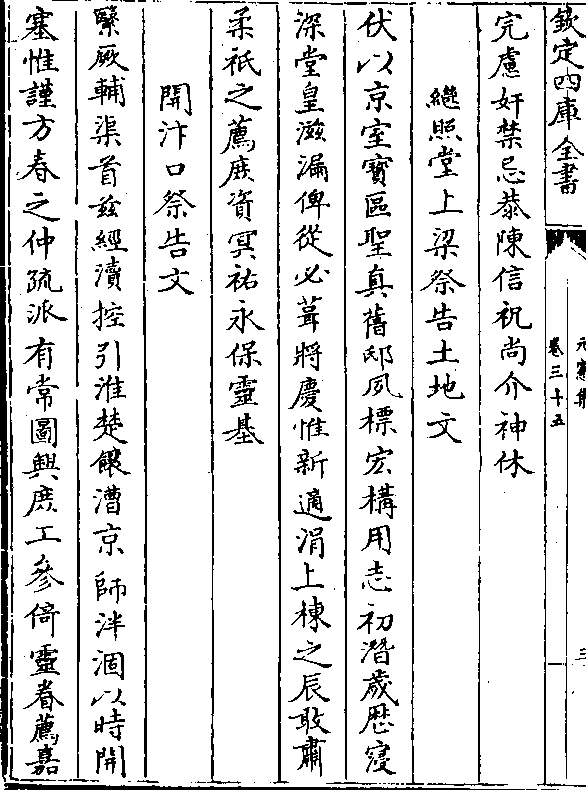 欽定四庫全書
元憲集
卷三十五
三
完慮奸禁忌恭陳信祝尚介神休
繼照堂上梁祭告土地文
伏以京室寶區聖真舊邸夙標宏構用志初潛歲歷寖
深堂皇滋漏俾從必葺將慶惟新適涓上棟之辰敢肅
柔祇之薦庶資冥祐永保靈基
開汴口祭告文
繄厥輔渠首茲經瀆控引淮楚饟漕京師泮涸以時開
塞惟謹方春之仲疏派有常圖興庶工參倚靈眷薦嘉